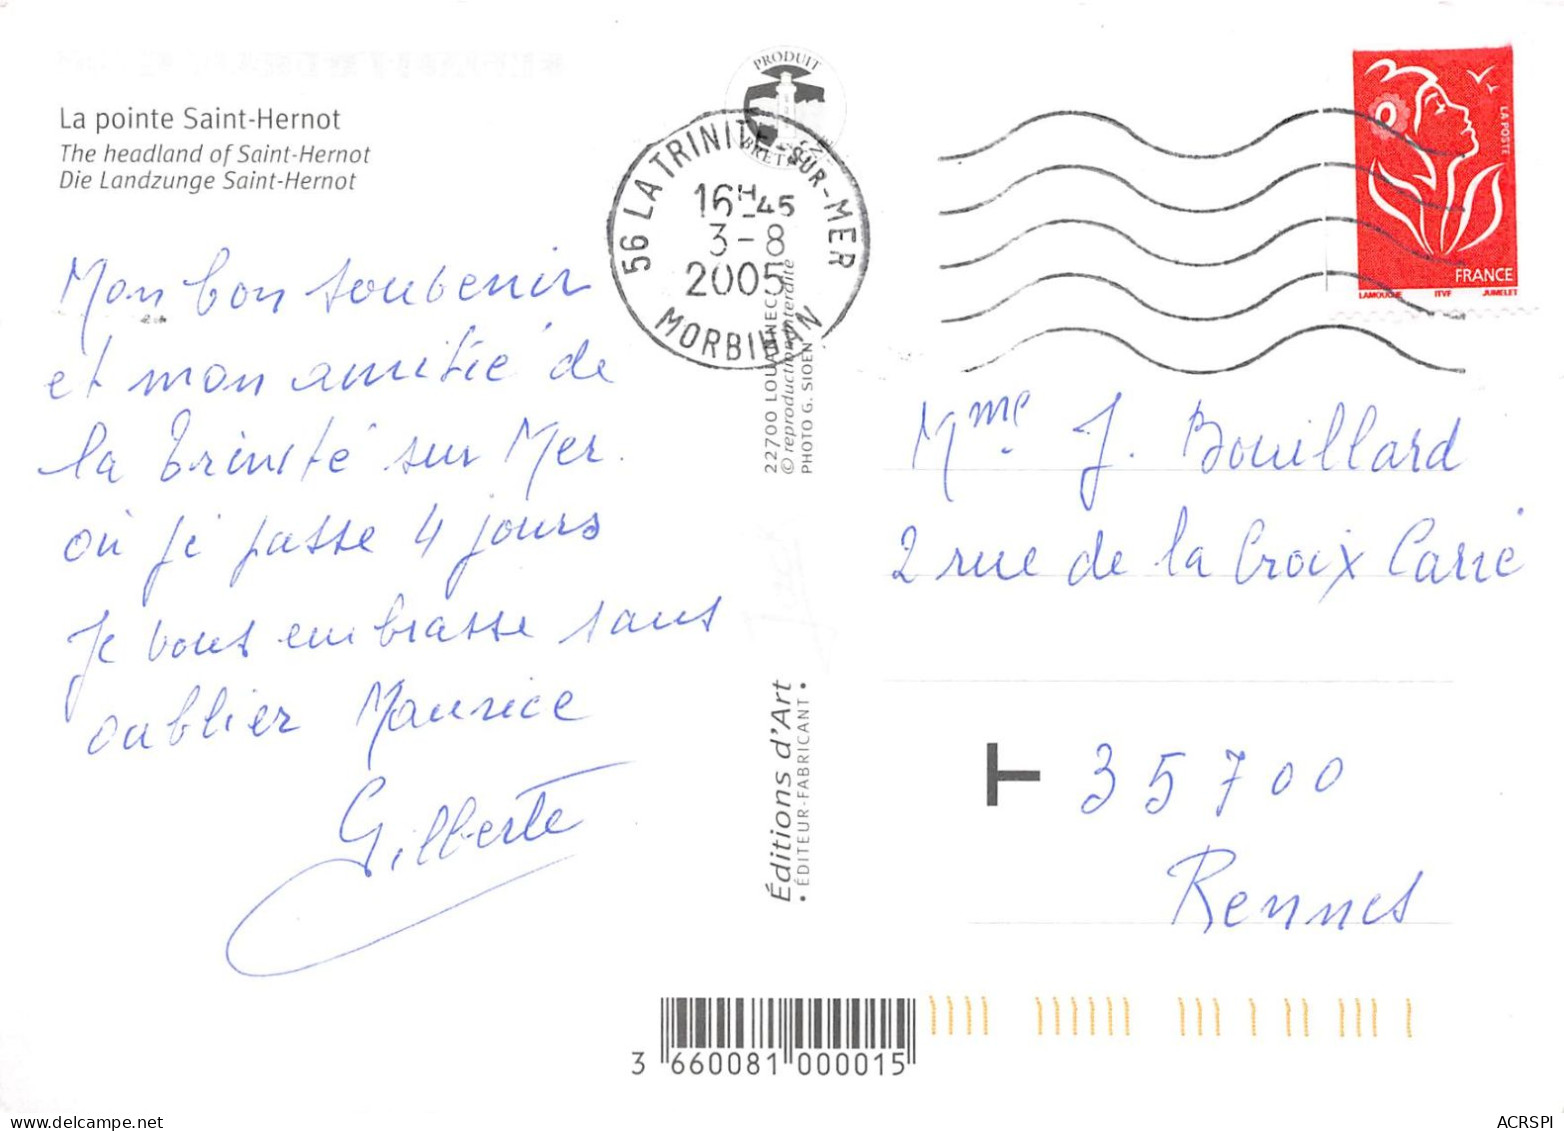 La pointe Saint-Hernot
The headland of Saint-Hernot
Die Landzunge Saint-Hernot
Mon bon souvenir
et mon amitié de
la Trinité sur Mer.
où je passe 4 jours
Je vous embrasse sans
oublier Maurice
Gilberte
PRODUIT
BRETA
56 LA TRINITE-SUR-MER
16H45
3-8
2005
MORBIHAN
22700 LOUANNEC
© reproduction interdite
PHOTO G. SIOEN
Éditions d'Art
• ÉDITEUR-FABRICANT •
LA POSTE
FRANCE
LAMOUCHE ITVF JUMELET
Mme J. Bouillard
2 rue de la Croix Carré
T 35700
Rennes
3 660081 000015
ACRSPI